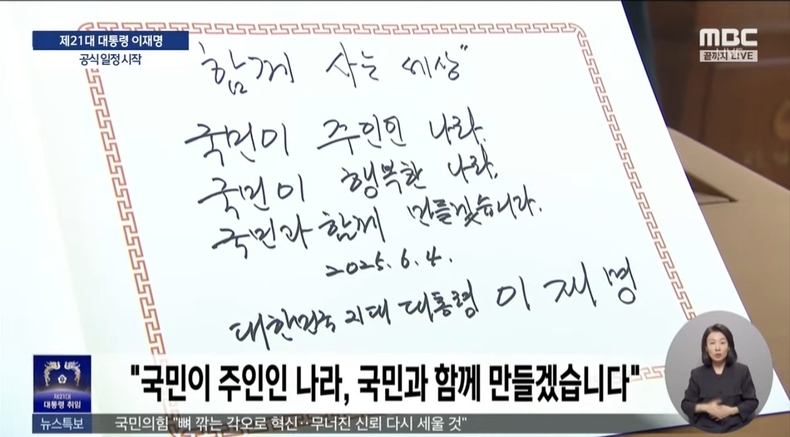 제21대 대통령 이재명
공식 일정 시작
MBC
끝까지 LIVE
"함께 사는 세상"
국민이 주인인 나라,
국민이 행복한 나라,
국민과 함께 만들겠습니다.
2025. 6. 4.
대한민국 21대 대통령 이재명
"국민이 주인인 나라, 국민과 함께 만들겠습니다"
제21대
대통령 취임
뉴스특보
국민의힘 "뼈 깎는 각오로 혁신…무너진 신뢰 다시 세울 것"